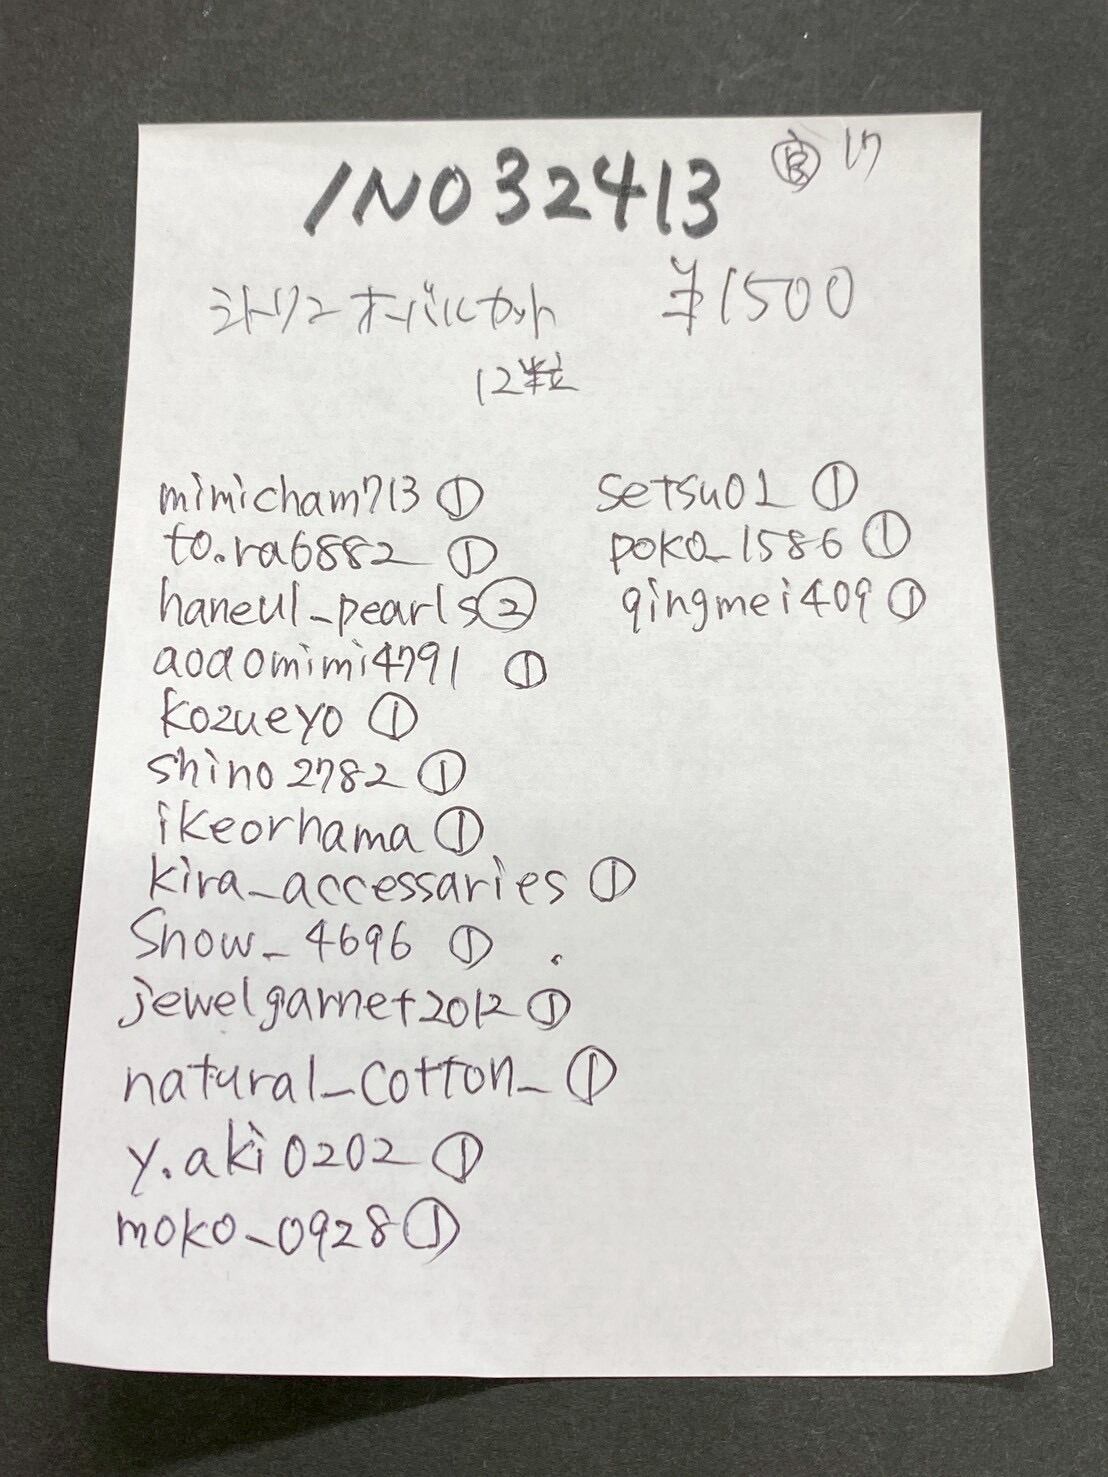 INO32413
17
シトリン オーバルカット ¥1500
12粒
mimicham713 ①
to.ra6882 ①
haneul_pearls ②
aoaomimi4791 ①
kozueyo ①
shino2782 ①
ikeorhama ①
kira_accessaries ①
Snow_4696 ①
jewelgarnet2012 ①
natural_cotton_ ①
y.aki0202 ①
moko_0928 ①
setsu01 ①
poko_1586 ①
qingmei409 ①